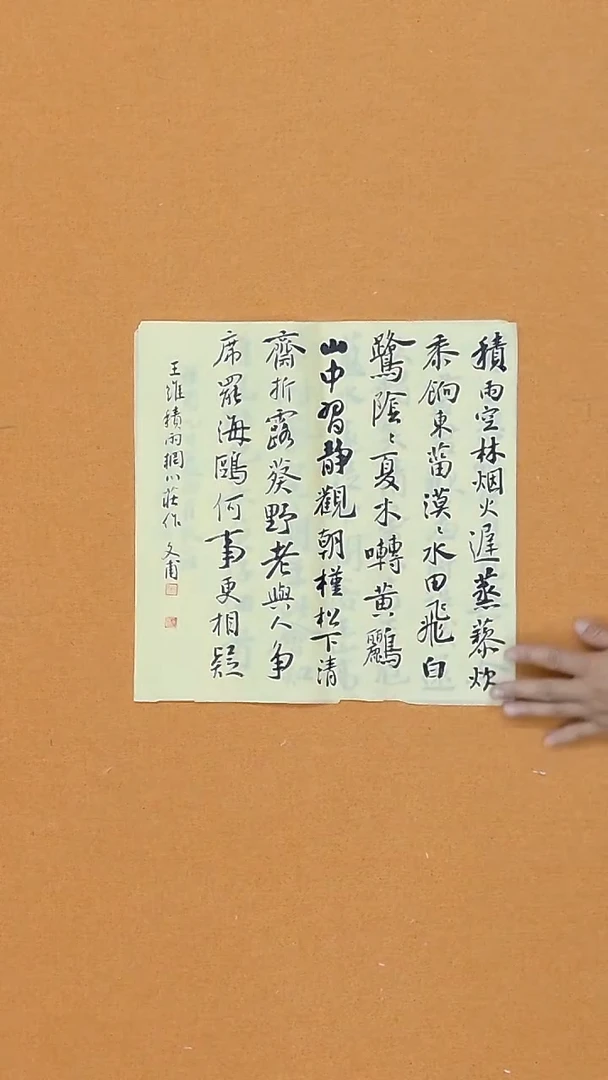 積雨空林烟火遲蒸藜炊
黍餉東菑漠〻水田飛白
鷺陰〻夏木囀黄鸝
山中習静觀朝槿松下清
齋折露葵野老與人争
席罷海鷗何事更相疑
王維積雨輞川莊作 文甫